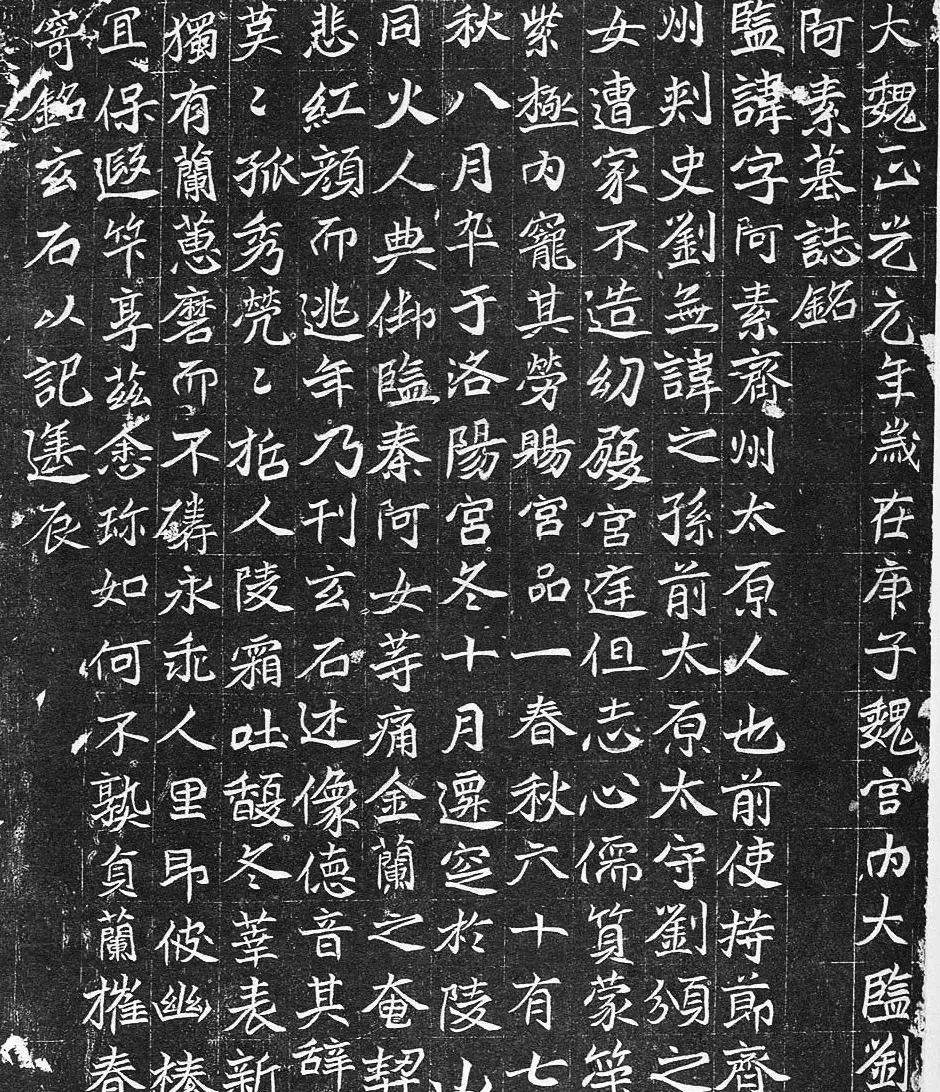 大魏正光元年歲在庚子魏宮內大監劉
阿素墓誌銘
監諱字阿素齊州太原人也前使持節齊
州刾史劉無諱之孫前太原太守劉頒之
女遭家不造幼履宮庭但志心儒質蒙策
紫極內寵其勞賜宮品一春秋六十有七
秋八月卒于洛陽宮冬十月遷窆於陵山
同火人典御監秦阿女等痛金蘭之奄契
悲紅顏而逃年乃刊玄石述像德音其辭
莫〻孤秀茕〻哲人陵霜吐馥冬華表新
獨有蘭蕙磨而不磷永乖人里即彼幽椿
宜保遐筭享兹悉珎如何不孰貞蘭摧春
寄銘玄石以記遥辰